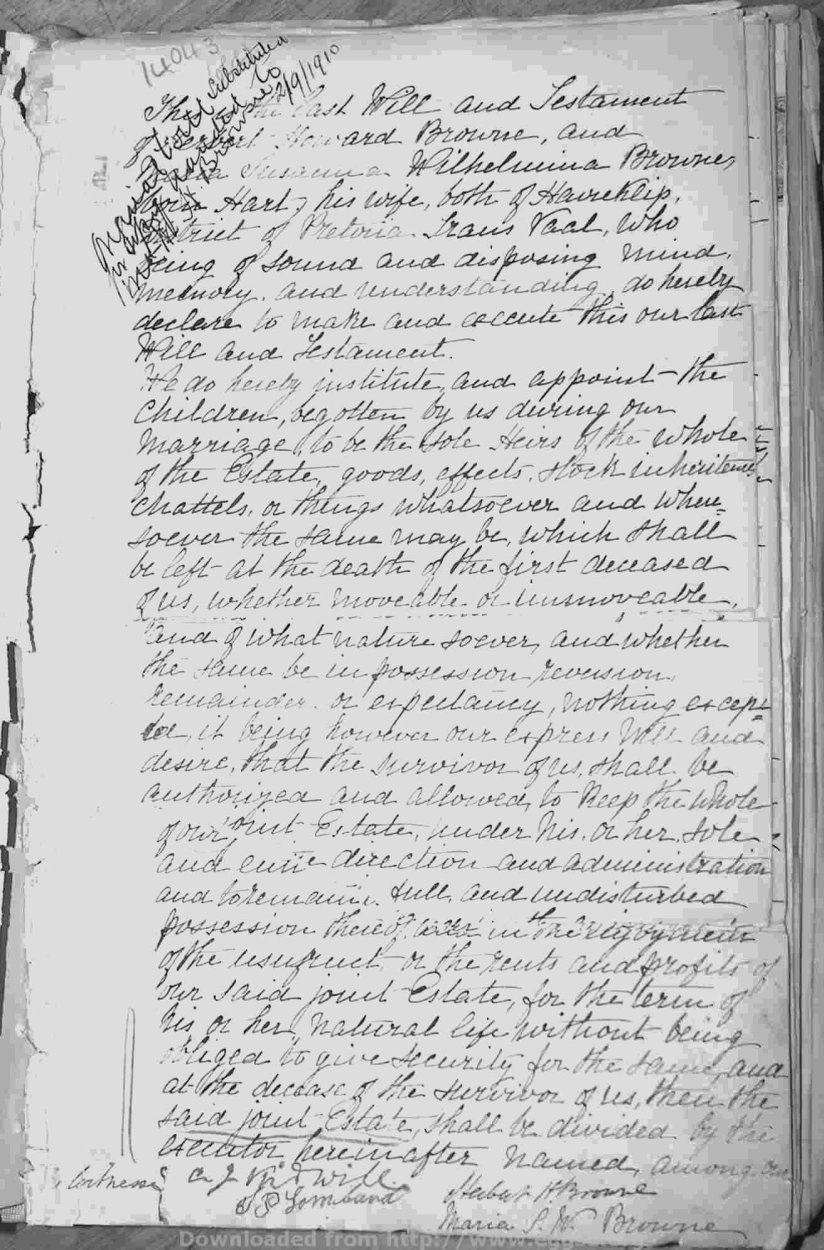 14043
2/9/1910
The Last Will and Testament
of Howard Browne, and
Susanna Wilhelmina Browne,
born Hart, his wife, both of
District of Pretoria Trans Vaal, Who
being of sound and disposing mind,
memory, and understanding, do hereby
declare to make and execute this our last
Will and Testament.
We do hereby institute, and appoint the
Children, begotten by us during our
Marriage, to be the sole Heirs of the whole
of the Estate, goods, effects, stock
Chattels, or things whatsoever and when=
soever the same may be, which shall
be left at the death of the first deceased
of us, whether moveable or immoveable,
and of what nature soever, and whether
the same be in possession reversion,
remainder, or expectancy, nothing except=
ted, it being however our express Will and
desire, that the survivor of us, shall be
authorized and allowed, to keep the whole
of our joint Estate, under his, or her, sole
and entire direction and administration
and to remain in full and undisturbed
possession thereof in the enjoyment
of the usufruct, or the rents and profits of
our said joint Estate, for the term of
his or her, natural life without being
obliged to give security for the same, and
at the decease of the survivor of us, then the
said joint Estate, shall be divided by the
executor hereinafter named, among
Witnesses
Lombaard
H Browne
Maria S. W. Browne
Downloaded from http://www.egg